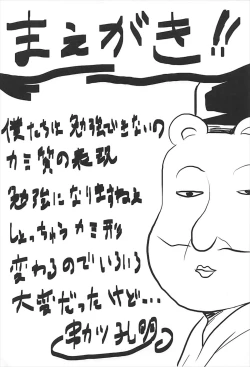 まえがき!!
僕たちは勉強できないの
カミ質の表現
勉強になりますねよ
しょっちゅうカミ形
変わるのでいろいろ
大変だったけど…
串カツ孔明。